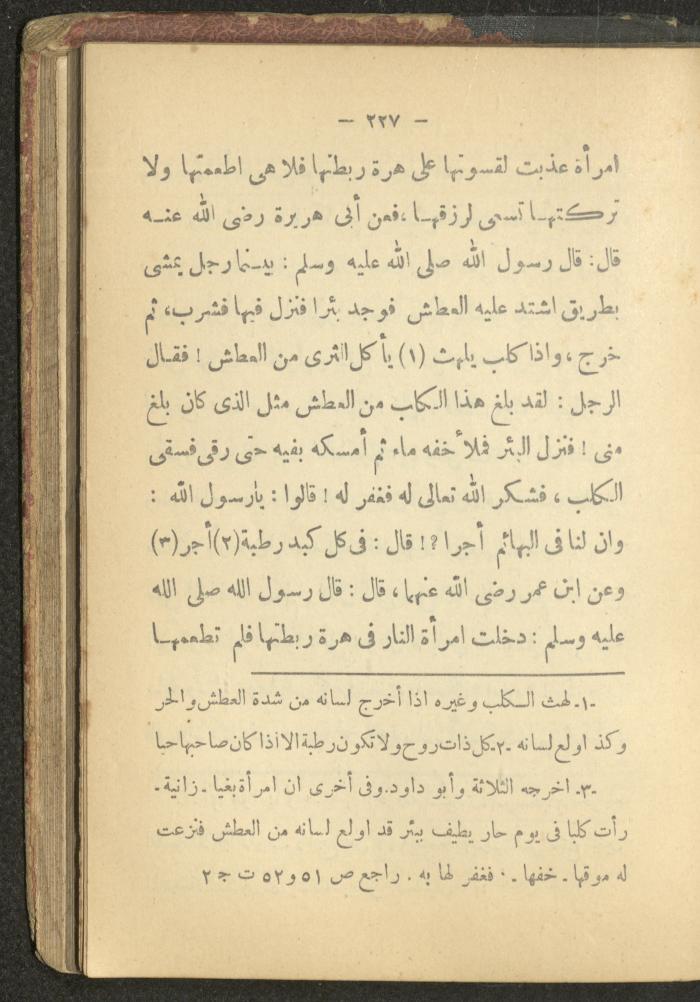 — ٢٢٧ —
امرأة عذبت لقسوتها على هرة ربطتها فلا هى اطعمتها ولا
تركتهـا تسعى لرزقهـا ،فعن أبى هريرة رضى الله عنـه
قال: قال رسول الله صلى الله عليه وسلم : بيـنما رجل يمشى
بطريق اشتد عليه العطاش فوجد بئرا فنزل فيها فشرب، ثم
خرج ، واذا كلب يلهث (١) يأكل الثرى من العطاش ! فقـال
الرجل : لقد بلغ هذا الكلب من العطش مثل الذى كان بلغ
منى ! فنزل البئر فملأ خفه ماء ثم أمسكه بفيه حتى رقى فسقى
الكلب ، فشكر الله تعالى له فغفر له ! قالوا : يارسول الله :
وان لنا فى البهائم أجرا ؟! قال : فى كل كبد رطبة(٢)أجر(٣)
وعن ابن عمر رضى الله عنهما ، قال : قال رسول الله صلى الله
عليه وسلم : دخلت امرأة النار فى هرة ربطتها فلم تطعمهـا
-١- لهث الـكلب وغيره اذا أخرج لسانه من شدة العطش والحر
وكذ اولع لسانه -٢-كل ذات روح ولا تكون رطبة الا اذا كان صاحبها حيا
-٣- اخرجه الثلاثة وأبو داود.وفى أخرى ان امرأة بغيا - زانية -
رأت كلبا فى يوم حار يطيف ببئر قد اولع لسانه من العطش فنزعت
له موقها - خفها - . فغفر لها به . راجع ص ٥١ و٥٢ ت ج ٢